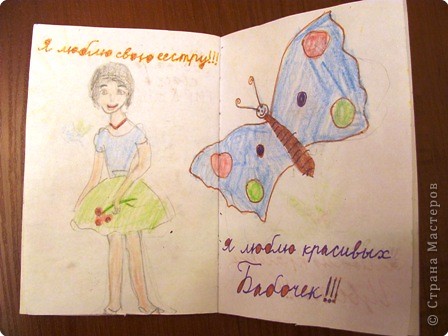 Я люблю свою сестру!!!
Я люблю красивых
Бабочек!!!
© Страна Мастеров